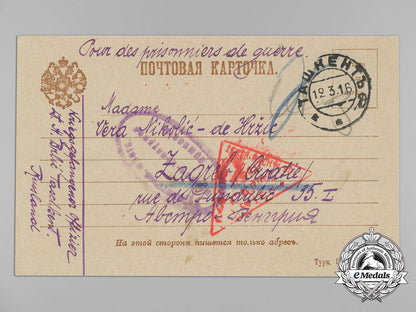 Pour des prisonniers de guerre
ПОЧТОВАЯ КАРТОЧКА.
ТАШКЕНТЪ
12.3.16
Madame
Vera Nikolić - de Hržić
Zagreb / Croatie /
rue des 15. I
Австро-Венгрия
Kriegsgefangener Offizier
Taschkent.
Russland
На этой сторонѣ пишется только адресъ.
Турк.
eMedals